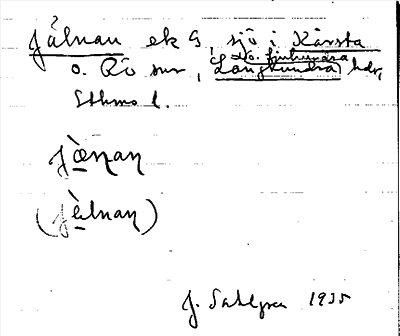 Jälnan ek G, sjö i Kårsta
o. Rö snr, Långhundra hdr,
Sthms l.
jæ̀nan
(jæ̀lnan)
J. Sahlgren 1935